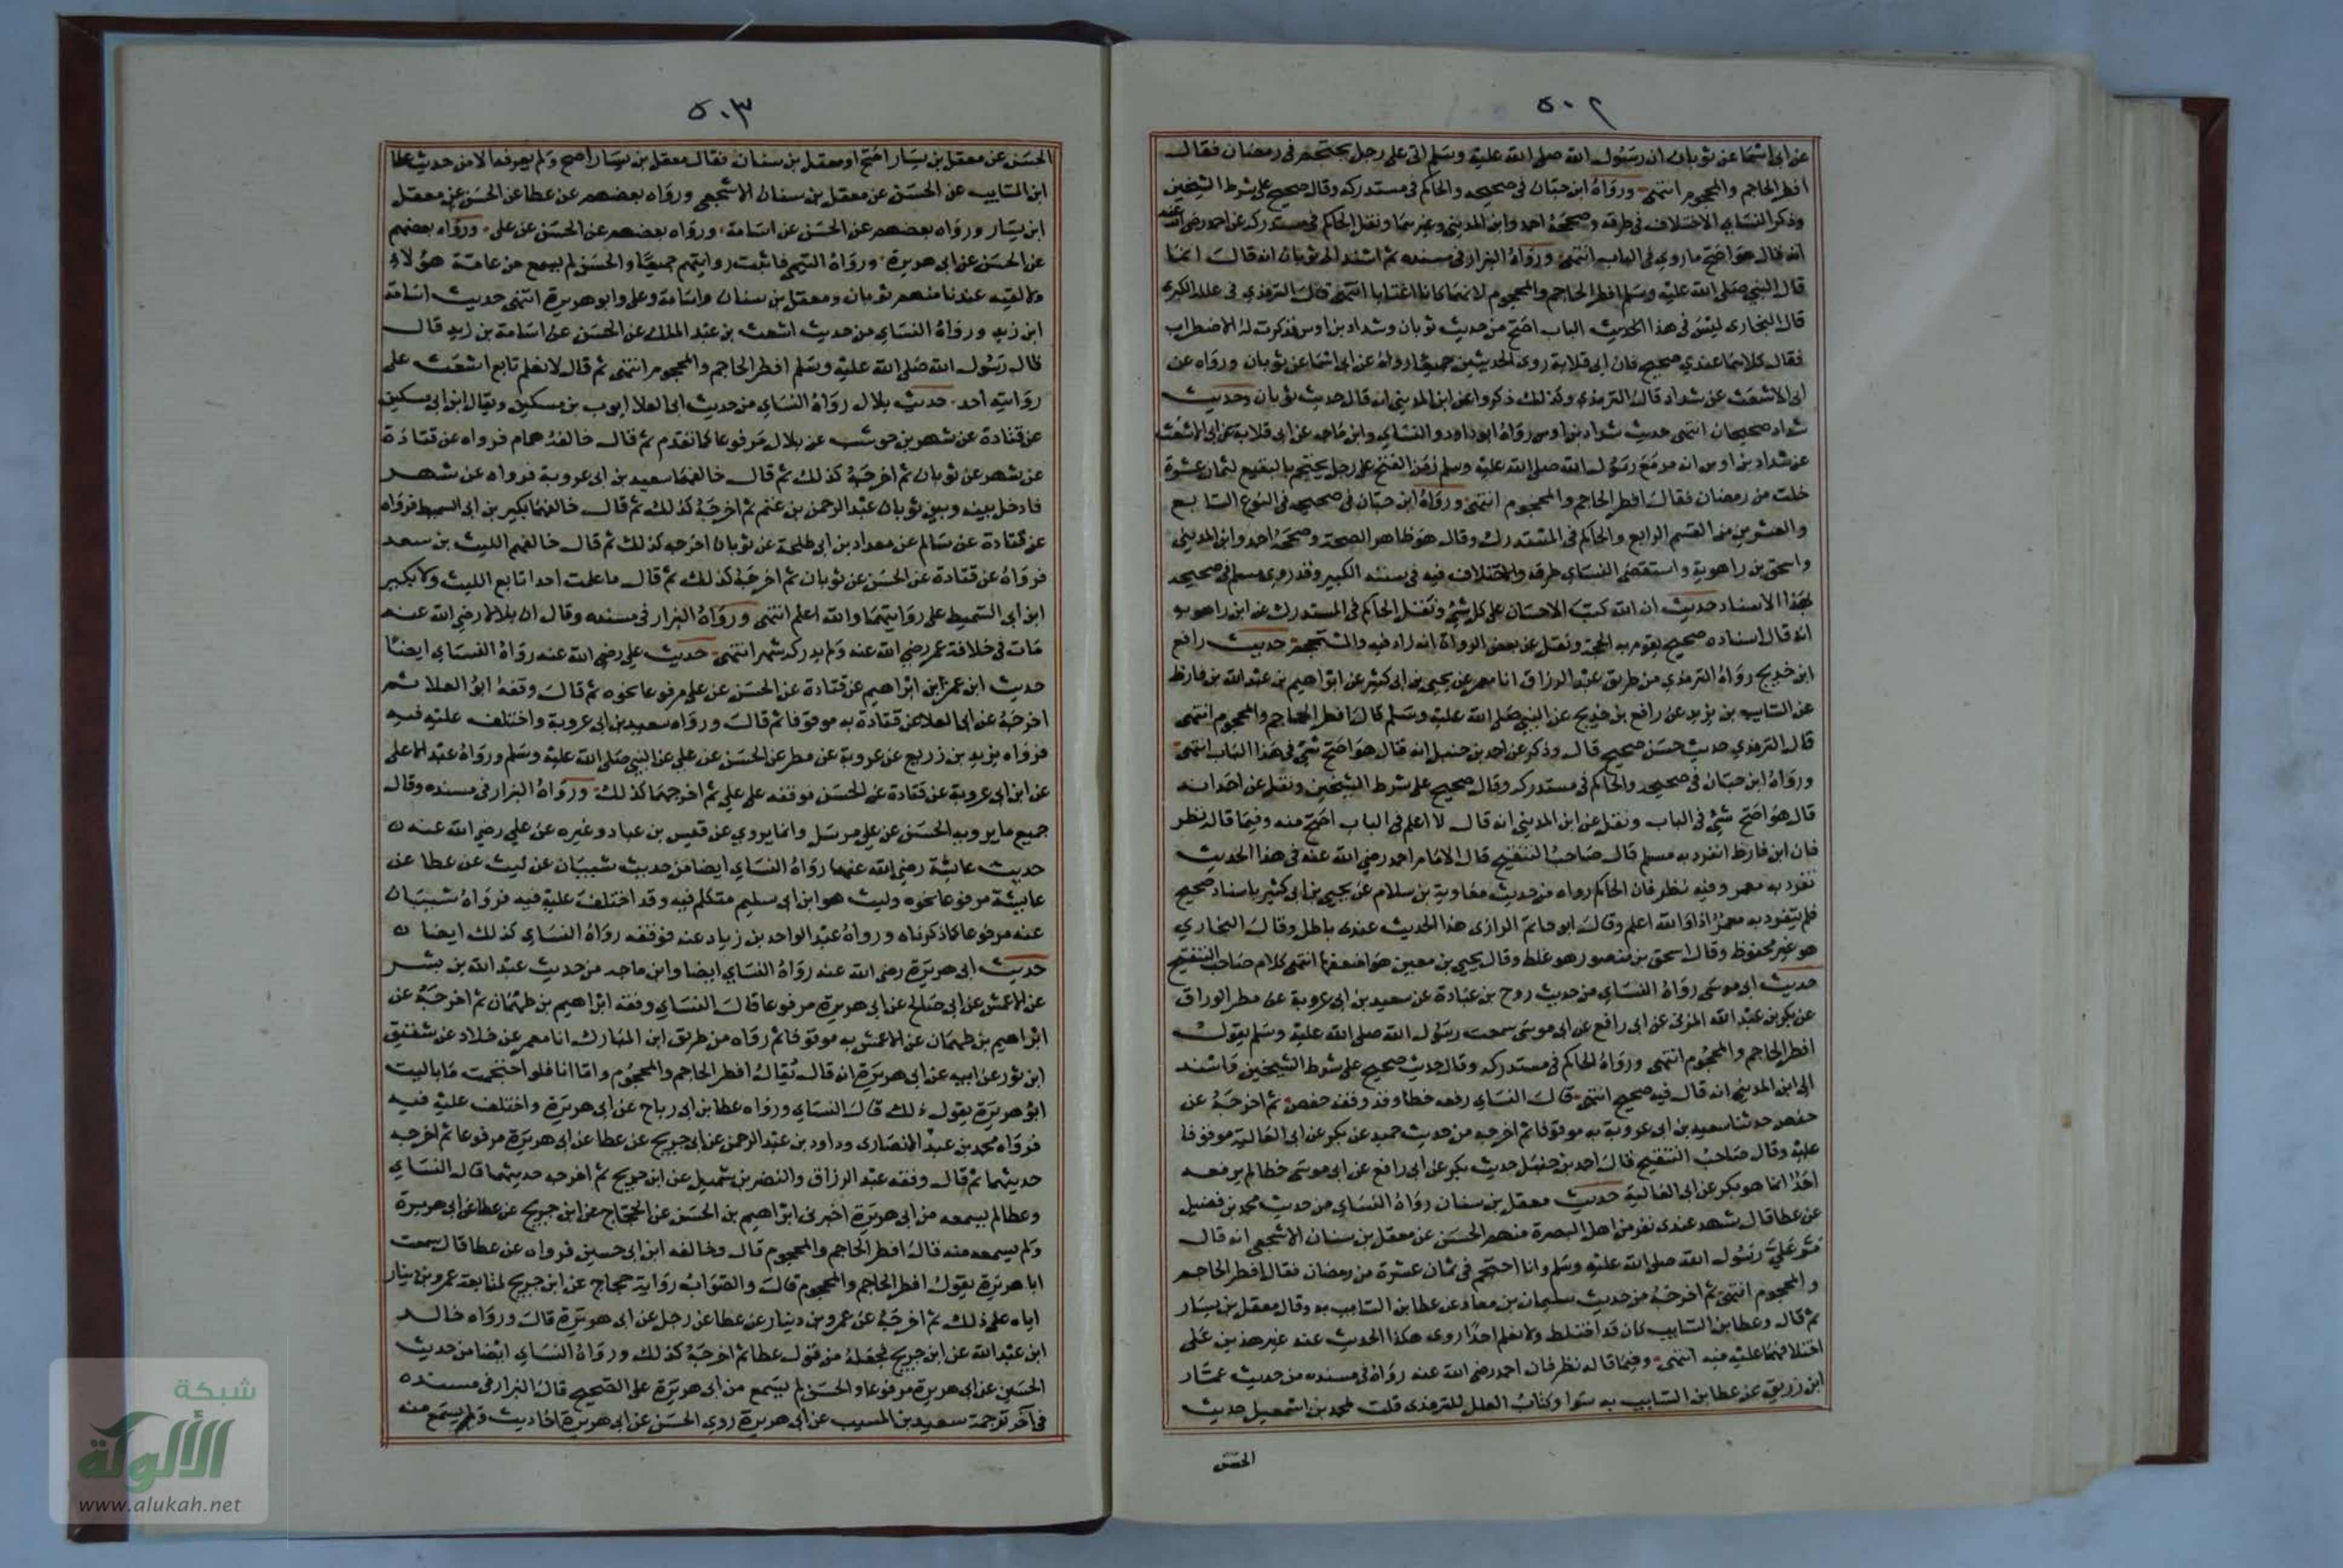 ٥٠٢
عن ابى اسما عن ثوبان ان رسول الله صلى الله عليه وسلم اتى على رجل يحتجم فى رمضان فقال
افطر الحاجم والمحجوم انتهى ورواه ابن حبان فى صحيحه والحاكم فى مستدركه وقال صحيح على شرط الشيخين
وذكر النساي الاختلاف فى طرقه وصححه احمد وابن المدينى وغيرهما ونقل الحاكم فى مستدركه عن احمد رضى الله عنه
انه قال هو اصح ما روي فى الباب انتهى ورواه البزار فى مسنده ثم اسند الى ثوبان انه قال انما
قال النبي صلى الله عليه وسلم افطر الحاجم والمحجوم لانهما كانا اغتابا انتهى قال الترمذي فى علله الكبرى
قال البخارى ليس فى هذا الحديث الباب اصح من حديث ثوبان وشداد بن اوس فذكرت له الاضطراب
فقال كلاهما عندي صحيح فان ابى قلابة روى الحديثين جميعا رواه عن ابى اسما عن ثوبان ورواه عن
ابى الاشعث عن شداد قال الترمذي وكذلك ذكروا عن ابن المدينى انه قال حديث ثوبان وحديث
شداد صحيحان انتهى حديث شداد بن اوس رواه ابو داود والنساي وابن ماجه عن ابى قلابة عن ابى الاشعث
عن شداد بن اوس انه مر مع رسول الله صلى الله عليه وسلم زمن الفتح على رجل يحتجم بالبقيع لثمان عشرة
خلت من رمضان فقال افطر الحاجم والمحجوم انتهى ورواه ابن حبان فى صحيحه فى النوع التابع
والعشرين من القسم الرابع والحاكم فى المستدرك وقال هو ظاهر الصحة وصححه احمد وابن المدينى
واسحق بن راهوية واستقصى النساي طرقه والاختلاف فيه فى سننه الكبير وقد روى مسلم فى صحيحه
بهذا الاسناد حديث ان الله كتب الاحسان على كل شئ ونقل الحاكم فى المستدرك عن ابن راهويه
انه قال اسناده صحيح يقوم به الحجة ونقل عن بعض الرواة انه زاد فيه والمستحجم حديث رافع
ابن خديج رواه الترمذي من طريق عبد الرزاق انا معمر عن يحيى بن ابى كثير عن ابراهيم بن عبد الله بن قارظ
عن السايب بن يزيد عن رافع بن خديج عن النبى صلى الله عليه وسلم قال افطر الحاجم والمحجوم انتهى
قال الترمذي حديث حسن صحيح قال وذكر عن احمد بن حنبل انه قال هو اصح شئ فى هذا الباب انتهى
ورواه ابن حبان فى صحيحه والحاكم فى مستدركه وقال صحيح على شرط الشيخين ونقل عن احمد انه
قال هو اصح شئ فى الباب ونقل عن ابن المدينى انه قال لا اعلم فى الباب اصح منه وفيما قاله نظر
فان ابن قارظ انفرد به مسلم قال صاحب التنقيح قال الامام احمد رضي الله عنه فى هذا الحديث
تفرد به معمر وفيه نظر فان الحاكم رواه من حديث معاوية بن سلام عن يحيى بن ابى كثير باسناد صحيح
فلم يتفرد به معمر اذا والله اعلم وقال ابو حاتم الرازى هذا الحديث عندى باطل وقال البخاري
هو غير محفوظ وقال اسحق بن منصور هو غلط وقال يحيى بن معين هو اضعفها انتهى كلام صاحب التنقيح
حديث ابى موسى رواه النساي من حديث روح بن عبادة عن سعيد بن ابى عروبة عن مطر الوراق
عن بكر بن عبد الله المزنى عن ابى رافع عن ابى موسى سمعت رسول الله صلى الله عليه وسلم يقول
افطر الحاجم والمحجوم انتهى ورواه الحاكم فى مستدركه وقال حديث صحيح على شرط الشيخين واسند
الى ابن المدينى انه قال فيه صحيح انتهى قال النساي رفعه خطا وقد وقفه حفص ثم اخرجه عن
حفص حدثنا سعيد بن ابى عروبة به موقوفا ثم اخرجه من حديث حميد عن بكر عن ابى العالية موقوفا
عليه وقال صاحب التنقيح قال احمد بن حنبل حديث بكر عن ابى رافع عن ابى موسى خطا لم يرفعه
احد انما هو بكر عن ابى العالية حديث معقل بن سنان رواه النساي من حديث محمد بن فضيل
عن عطا قال شهد عندى نفر من اهل البصرة منهم الحسن عن معقل بن سنان الاشجعى انه قال
مر علي رسول الله صلى الله عليه وسلم وانا احتجم فى ثمان عشرة من رمضان فقال افطر الحاجم
والمحجوم انتهى ثم اخرجه من حديث سليمان بن معاذ عن عطا بن السايب به وقال معقل بن يسار
ثم قال وعطا بن السايب كان قد اختلط ولا نعلم احدا روى هكذا الحديث عنه غير هذين على
اختلافهما عليه فيه انتهى وفيما قاله نظر فان احمد رضى الله عنه رواه فى مسنده من حديث عمار
ابن زريق عن عطا بن السايب به سوا وكتاب العلل للترمذى قلت لمحمد بن اسمعيل حديث
الحسن
٥٠٣
الحسن عن معقل بن يسار اصح او معقل بن سنان فقال معقل بن يسار اصح ولم يعرفه الا من حديث عطا
ابن السايب عن الحسن عن معقل بن سنان الاشجعى ورواه بعضهم عن عطا عن الحسن عن معقل
ابن يسار ورواه بعضهم عن الحسن عن اسامة ورواه بعضهم عن الحسن عن على ورواه بعضهم
عن الحسن عن ابى هريرة ورواه التيمى فاثبت روايتهم جميعا والحسن لم يسمع من عامة هؤلاء
ولا لقيه عندنا منهم ثوبان ومعقل بن سنان واسامة وعلى وابو هريرة انتهى حديث اسامة
ابن زيد ورواه النساي من حديث اشعث بن عبد الملك عن الحسن عن اسامة بن زيد قال
قال رسول الله صلى الله عليه وسلم افطر الحاجم والمحجوم انتهى ثم قال لا نعلم تابع اشعث على
روايته احد حديث بلال رواه النساي من حديث ابى العلا ايوب بن مسكين ويقال ابن ابى مسكين
عن قتادة عن شهر بن حوشب عن بلال مرفوعا كما تقدم ثم قال خالفه همام فرواه عن قتادة
عن شهر عن ثوبان ثم اخرجه كذلك ثم قال خالفهما سعيد بن ابى عروبة فرواه عن شهر
فادخل بينه وبين ثوبان عبد الرحمن بن غنم ثم اخرجه كذلك ثم قال خالفهما بكير بن ابى السميط فرواه
عن قتادة عن سالم عن معدان بن ابى طلحة عن ثوبان اخرجه كذلك ثم قال خالفهم الليث بن سعد
فرواه عن قتادة عن الحسن عن ثوبان ثم اخرجه كذلك ثم قال ما علمت احدا تابع الليث ولا بكير
ابن ابى السميط على روايتهما والله اعلم انتهى ورواه البزار فى مسنده وقال ان بلالا رضي الله عنه
مات فى خلافة عمر رضي الله عنه ولم يدركه شهر انتهى حديث على رضي الله عنه رواه النساي ايضا
حديث ابن عمر ابن ابراهيم عن قتادة عن الحسن عن على مرفوعا نحوه ثم قال وقفه ابو العلا ثم
اخرجه عن ابى العلا عن قتادة به موقوفا ثم قال ورواه سعيد بن ابى عروبة واختلف عليه فيه
فرواه يزيد بن زريع عن عروبة عن مطر عن الحسن عن على عن النبى صلى الله عليه وسلم ورواه عبد الاعلى
عن ابن ابى عروبة عن قتادة عن الحسن فوقفه على علي ثم اخرجهما كذلك ورواه البزار فى مسنده وقال
جميع ما يرويه الحسن عن على مرسل وانما يروي عن قيس بن عباد وغيره عن علي رضي الله عنه
حديث عايشة رضي الله عنها رواه النساي ايضا من حديث شيبان عن ليث عن عطا عن
عايشة مرفوعا نحوه وليث هو ابن ابى سليم متكلم فيه وقد اختلف عليه فيه فرواه شيبان
عنه مرفوعا كما ذكرناه ورواه عبد الواحد بن زياد عنه فوقفه رواه النساي كذلك ايضا
حديث ابى هريرة رضي الله عنه رواه النساي ايضا وابن ماجه من حديث عبد الله بن بشر
عن الاعمش عن ابى صالح عن ابى هريرة مرفوعا قال النساي وقفه ابراهيم بن طهمان ثم اخرجه عن
ابراهيم بن طهمان عن الاعمش به موقوفا ثم رواه من طريق ابن المبارك انا معمر عن خلاد عن شقيق
ابن ثور عن ابيه عن ابى هريرة انه قال يقال افطر الحاجم والمحجوم واما انا فلو احتجمت ما باليت
ابو هريرة يقول ذلك قال النساي ورواه عطا بن ابى رباح عن ابى هريرة واختلف عليه فيه
فرواه محمد بن عبد الانصارى وداود بن عبد الرحمن عن ابى جريج عن عطا عن ابى هريرة مرفوعا ثم اخرجه
حديثهما ثم قال وقفه عبد الرزاق والنضر بن شميل عن ابن جريج ثم اخرجه حديثهما قال النساي
وعطا لم يسمعه من ابى هريرة اخبرنى ابراهيم بن الحسن عن الحجاج عن ابن جريج عن عطا عن ابى هريرة
ولم يسمعه منه قال افطر الحاجم والمحجوم قال وخالفه ابن ابى حسين فرواه عن عطا قال سمعت
ابا هريرة يقول افطر الحاجم والمحجوم قال والصواب رواية حجاج عن ابن جريج لمتابعة عمرو بن دينار
اياه على ذلك ثم اخرجه عن عمرو بن دينار عن عطا عن رجل عن ابى هريرة قال ورواه خالد
ابن عبد الله عن ابن جريج فجعله من قول عطا ثم اخرجه كذلك ورواه النساي ايضا من حديث
الحسن عن ابى هريرة مرفوعا والحسن لم يسمع من ابى هريرة على الصحيح قال البزار فى مسنده
فى آخر ترجمة سعيد بن المسيب عن ابى هريرة روي الحسن عن ابى هريرة احاديث ولم يسمع منه
شبكة
الألوكة
www.alukah.net